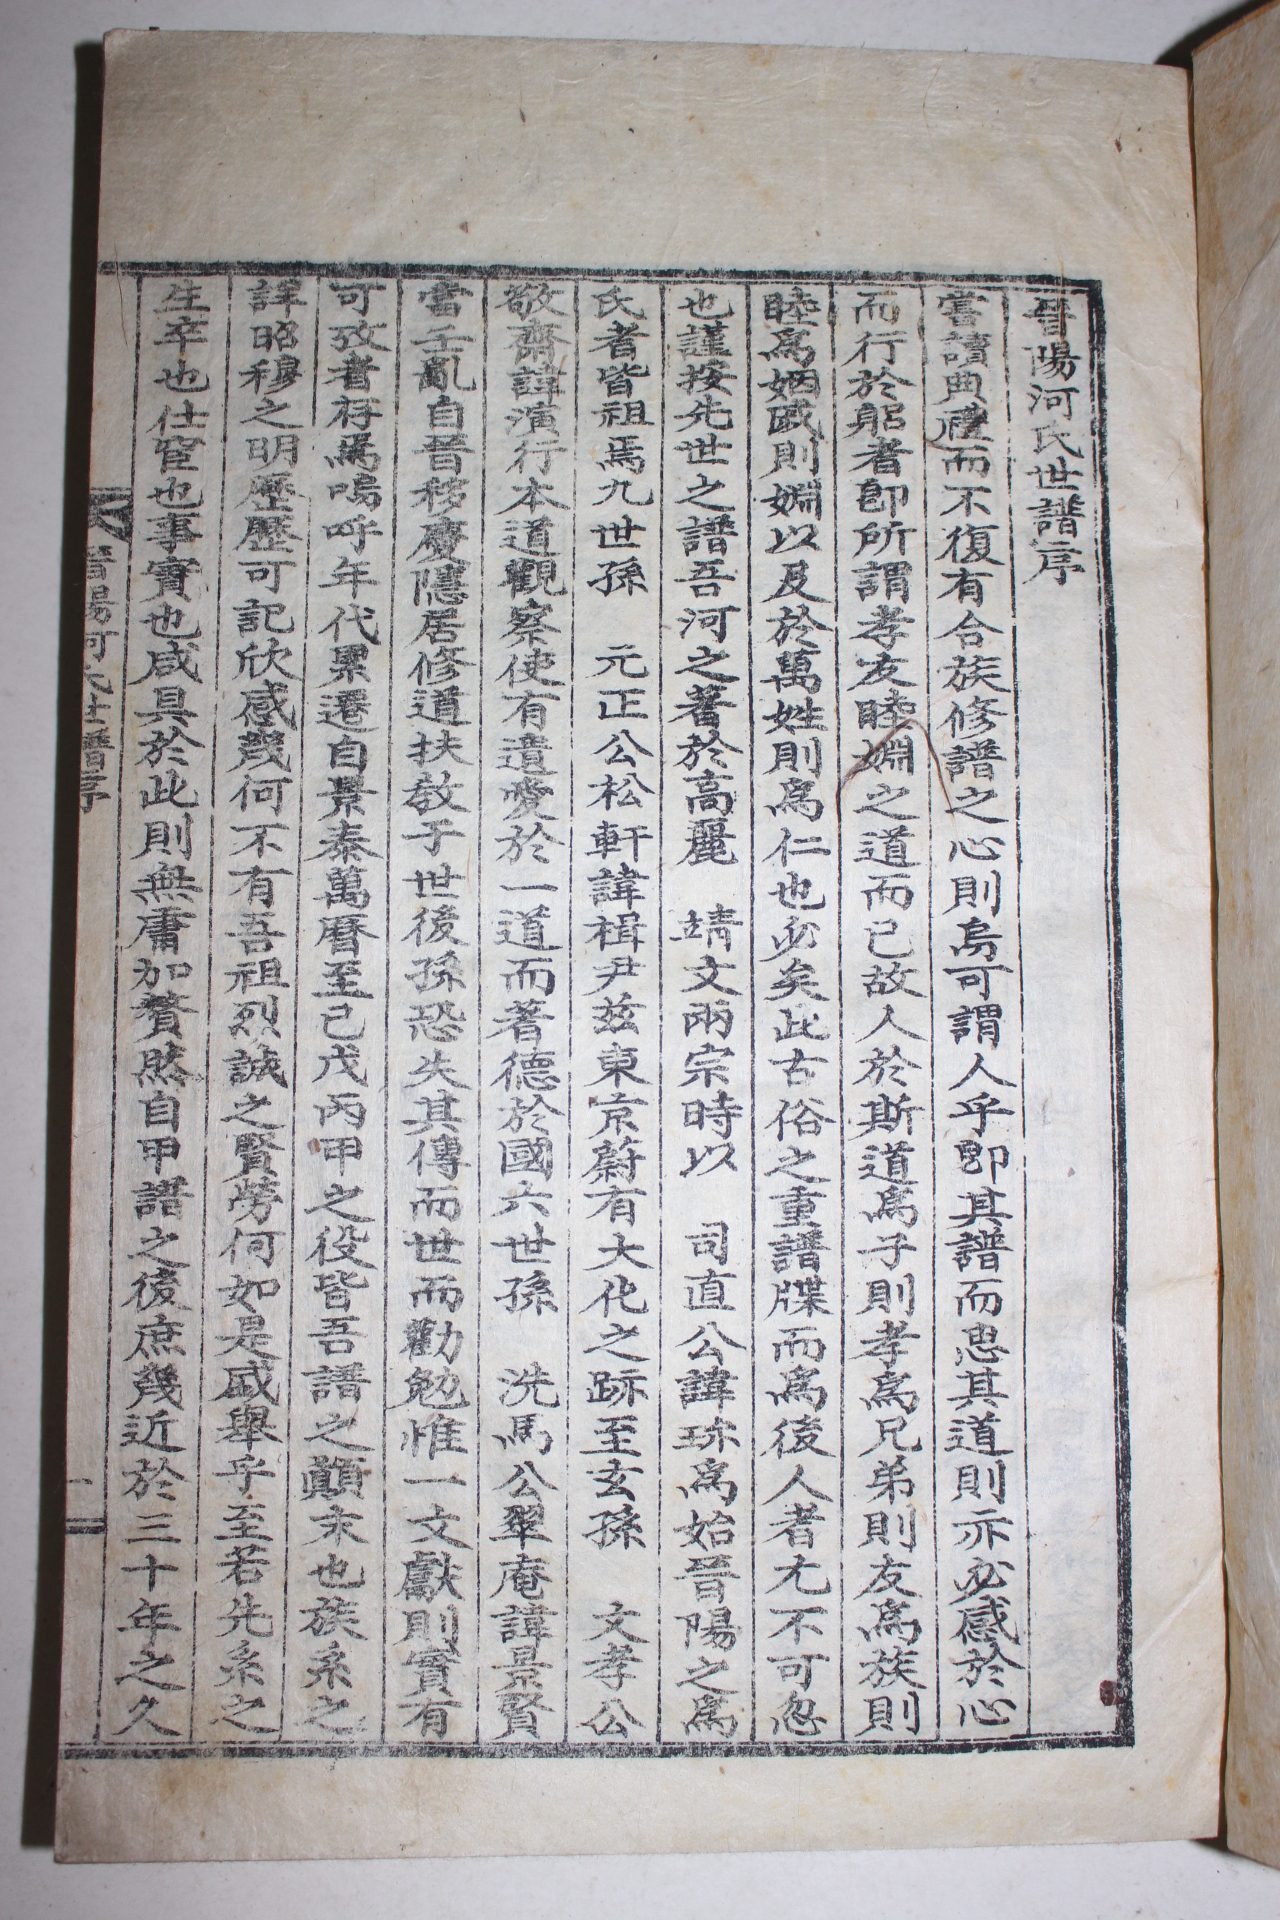 晉陽河氏世譜序
嘗讀典禮而不復有合族修譜之心則烏可謂人乎卽其譜而思其道則亦必感於心
而行於躬者卽所謂孝友睦婣之道而已故人於斯道爲子則孝爲兄弟則友爲族則
睦爲姻戚則婣以及於萬姓則爲仁也必矣此古俗之重譜牒而爲後人者尤不可忽
也謹按先世之譜吾河之著於高麗 靖文兩宗時以 司直公諱珍爲始晉陽之爲
氏者皆祖焉九世孫 元正公松軒諱楫尹玆東京蔚有大化之跡至玄孫 文孝公
敬齋諱演行本道觀察使有遺愛於一道而著德於國六世孫 洗馬公翠庵諱景賢
當壬亂自晉移慶隱居修道扶敎于世後孫恐失其傳而世而勸勉惟一文獻則實有
可攷者存焉嗚呼年代累遷自景泰萬曆至己戊丙甲之役皆吾譜之顚末也族系之
詳昭穆之明歷歷可記欣感幾何不有吾祖烈誠之賢勞何如是盛擧乎至若先系之
生卒也仕宦也事實也咸具於此則無庸加贅然自甲譜之後庶幾近於三十年之久
晉陽河氏世譜序 一